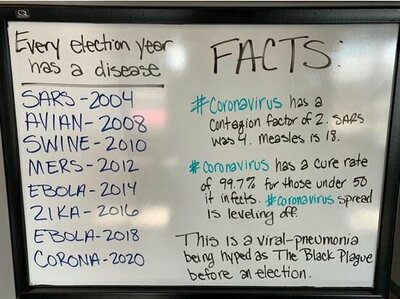 Every election year
has a disease
SARS-2004
AVIAN-2008
SWINE-2010
MERS-2012
EBOLA-2014
ZIKA-2016
EBOLA-2018
CORONA-2020
FACTS:
#Coronavirus has a
contagion factor of 2. SARS
was 4. Measles is 18.
#Coronavirus has a cure rate
of 99.7% for those under 50
it infects. #coronavirus spread
is leveling off.
This is a viral-pneumonia
being hyped as The Black Plague
before an election.